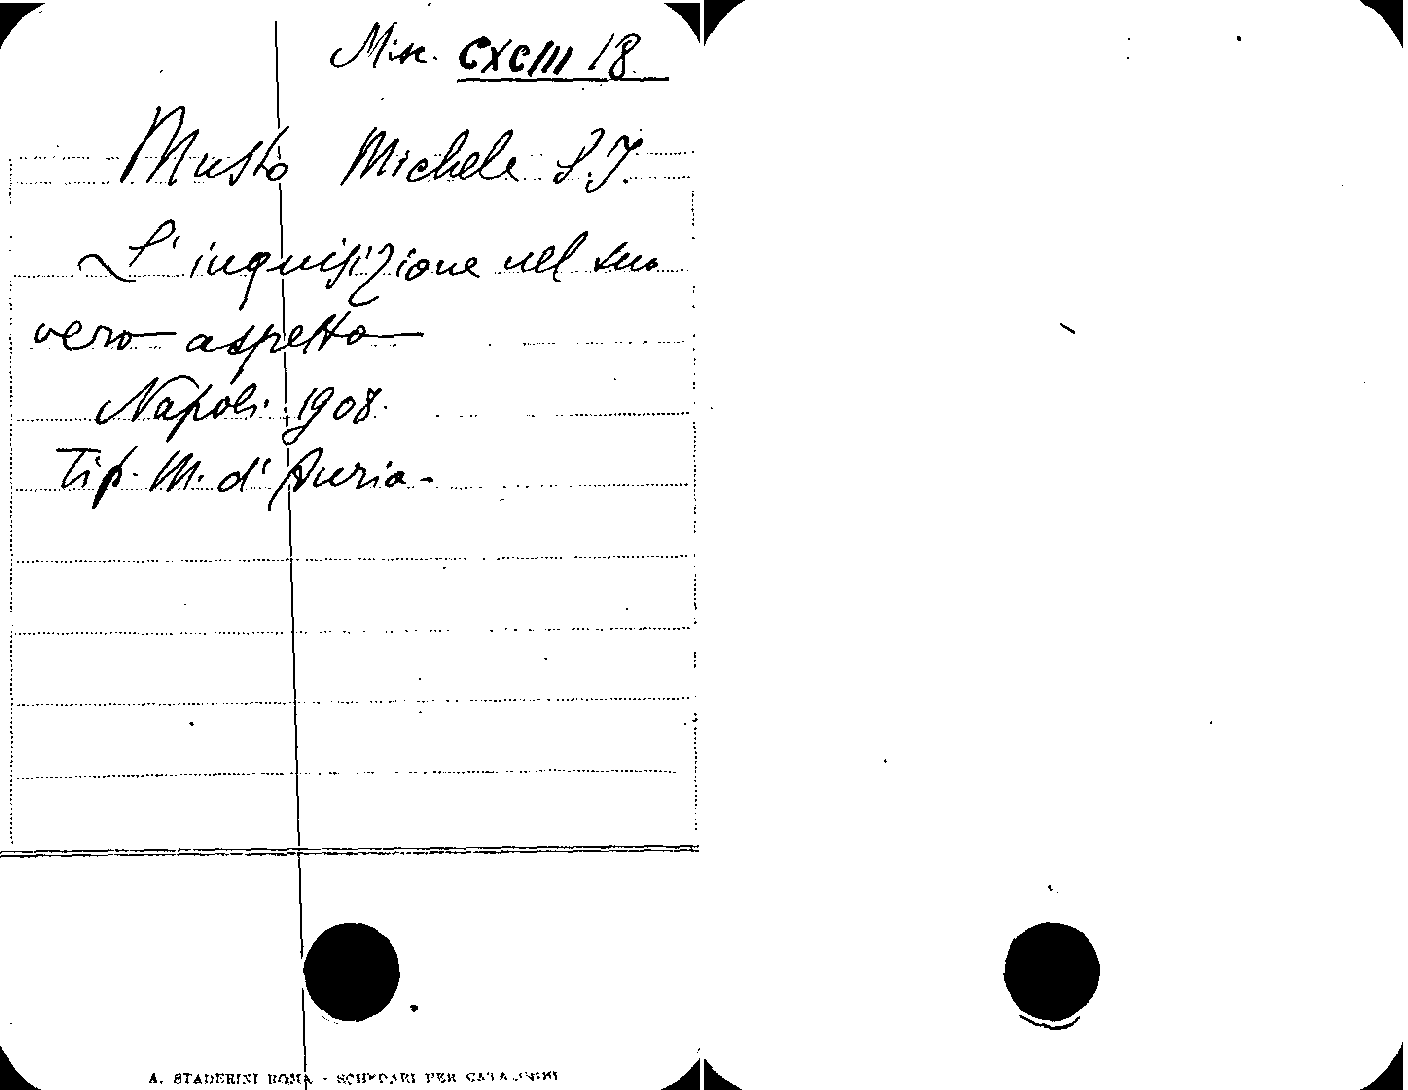 Misc. CXCIII 18
Musto Michele S.J.
L'inquisizione nel suo
vero aspetto
Napoli. 1908.
Tip. M. d'Auria -
A. STADERINI ROMA - SCHEDARI PER CATALOGHI